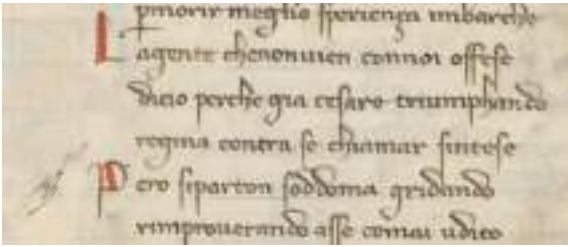 pmorir meglio sperienza imbarche
L agente chenonuien connoi offese
dicio perche gia cesare triumphando
regina contra se chiamar sintese
P ero siparton soddoma gridando
rimprouerando asse comai udito